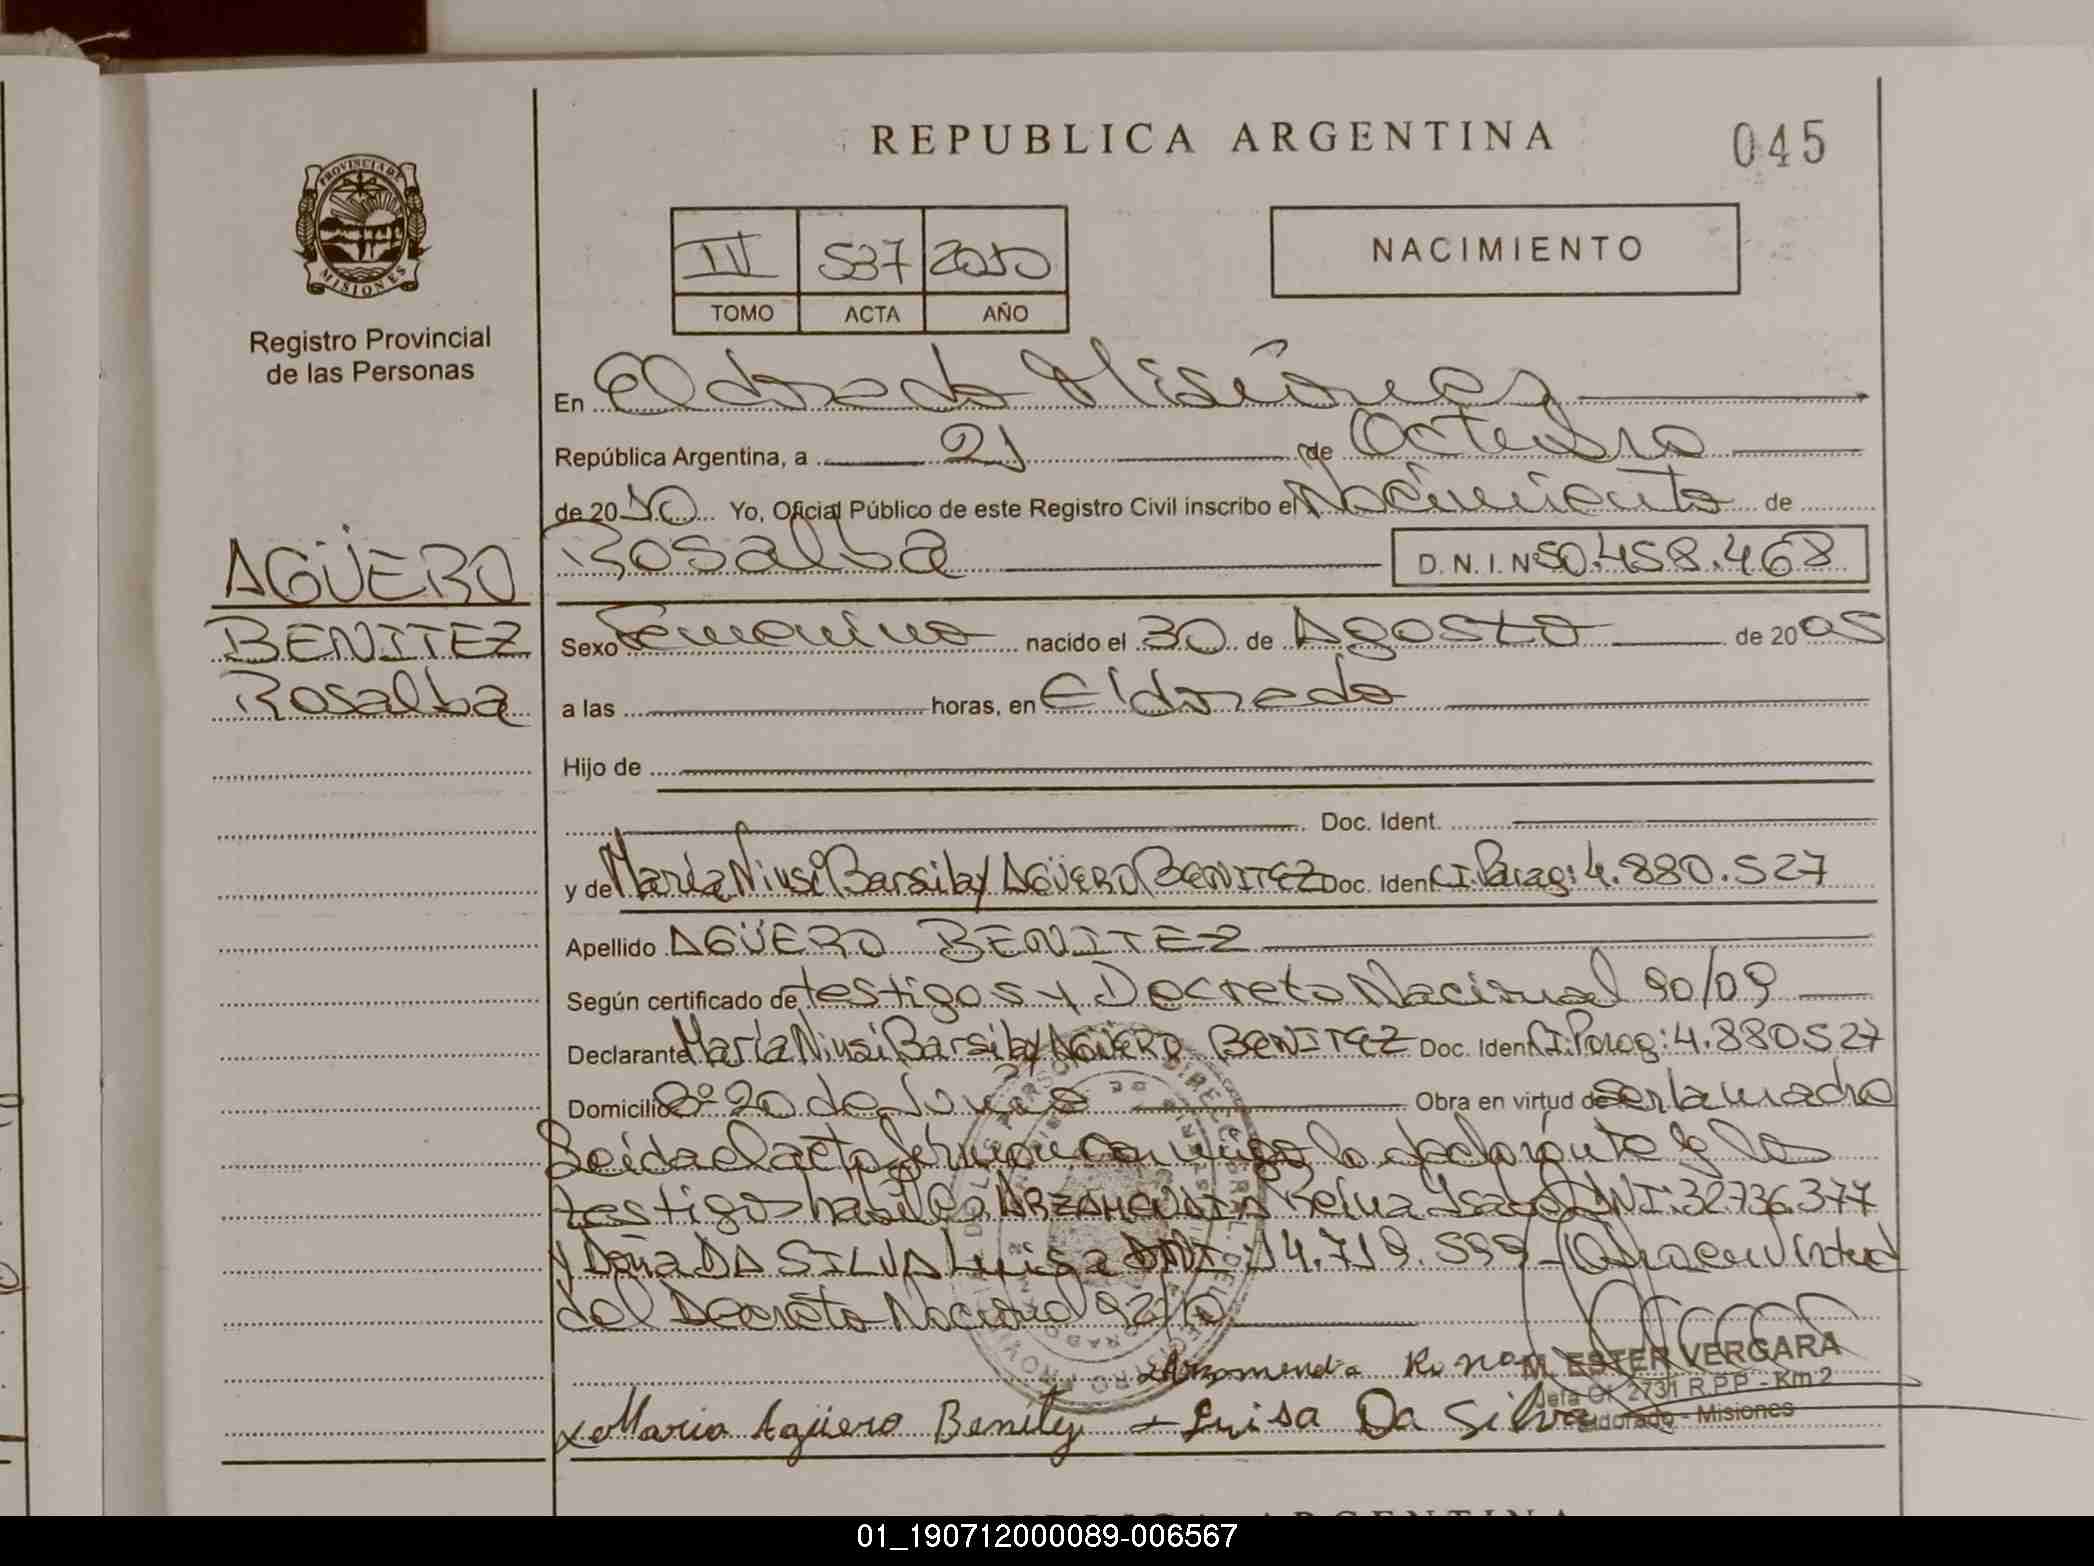 REPUBLICA ARGENTINA
045
PROVINCIA DE
MISIONES
Registro Provincial
de las Personas
III 537 2010
TOMO ACTA AÑO
NACIMIENTO
En Eldorado Misiones
República Argentina, a 21 de Octubre
de 2010 Yo, Oficial Público de este Registro Civil inscribo el Nacimiento de
AGÜERO
BENITEZ
Rosalba
Rosalba D. N. I. Nº 50.458.468
Sexo Femenino nacido el 30 de Agosto de 2005
a las horas, en Eldorado
Hijo de
Doc. Ident.
y de María Niusi Barsilay AGÜERO BENITEZ Doc. Ident C.I. Parag: 4.880.527
Apellido AGÜERO BENITEZ
Según certificado de testigos y Decreto Nacional 90/09
Declarante María Niusi Barsilay AGÜERO BENITEZ Doc. Ident C.I. Parag: 4.880527
Domicilio Bº 20 de Junio Obra en virtud de ser la madre
Leída el acta firman conmigo la declarante y los
testigos hábiles ARZAMENDIA Reina Isabel DNI: 32.736.377
y Doña DA SILVA Luisa DNI: 14.719.599 - Obra en virtud
del Decreto Nacional 92/10
Arzamendia
M. ESTER VERGARA
Jefa Of. 2731 R.P.P - Km 2
Eldorado - Misiones
x Maria Agüero Benitez + Luisa Da Silva
01_190712000089-006567